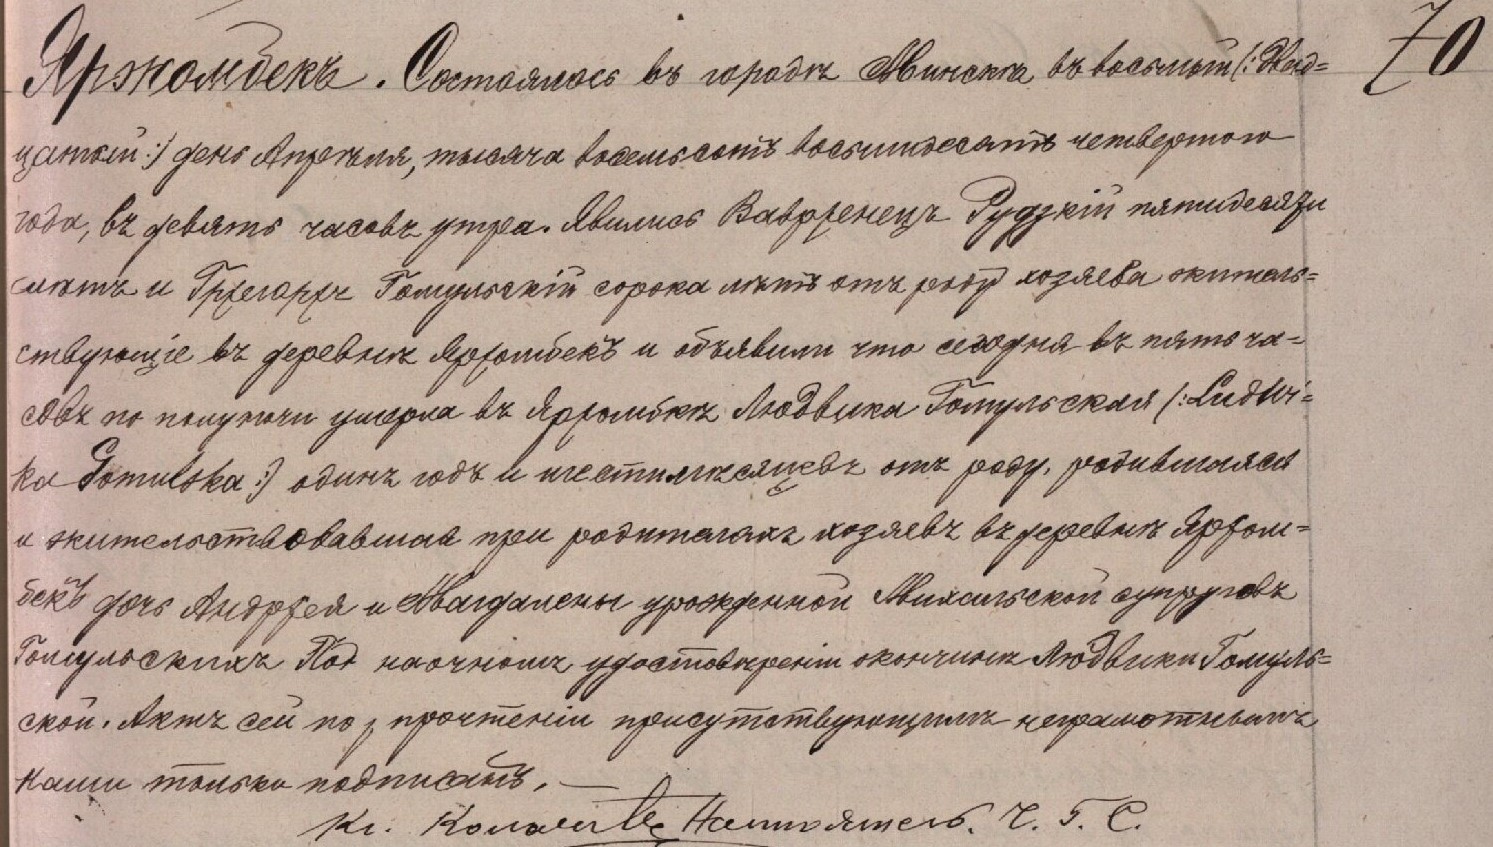 Яржомбекъ. Состоялось въ городѣ Минскѣ въ восьмый (: Двад=
цатый :) день Апрѣля, тысяча восемьсотъ восьмидесятъ четвертого
года, въ девять часовъ утра. Явились Ваврженецъ Рудзкій пятидесяти
лѣтъ и Гржегоржъ Гомульскій сорока лѣтъ отъ роду хозяева житель=
ствующіе въ деревнѣ Яржомбекъ и объявили что сегодня въ пять ча=
совъ по полуночи умерла въ Яржомбкѣ Людвика Гомульская (: Ludwi=
ka Gomulska :) одинъ годъ и шестимѣсяцевъ отъ роду, родившаяся
и жительствовавшая при родителяхъ хозяевъ въ деревнѣ Яржом=
бекъ дочь Андржея и Магдалены урожденной Михальской супруговъ
Гомульскихъ По наочномъ удостовѣреніи окончинѣ Людвики Гомуль=
ской. Актъ сей по прочтеніи присутствующимъ неграмотнымъ
Нами только подписанъ. —
Кс. Настоятель. Ч. Г. С.
70